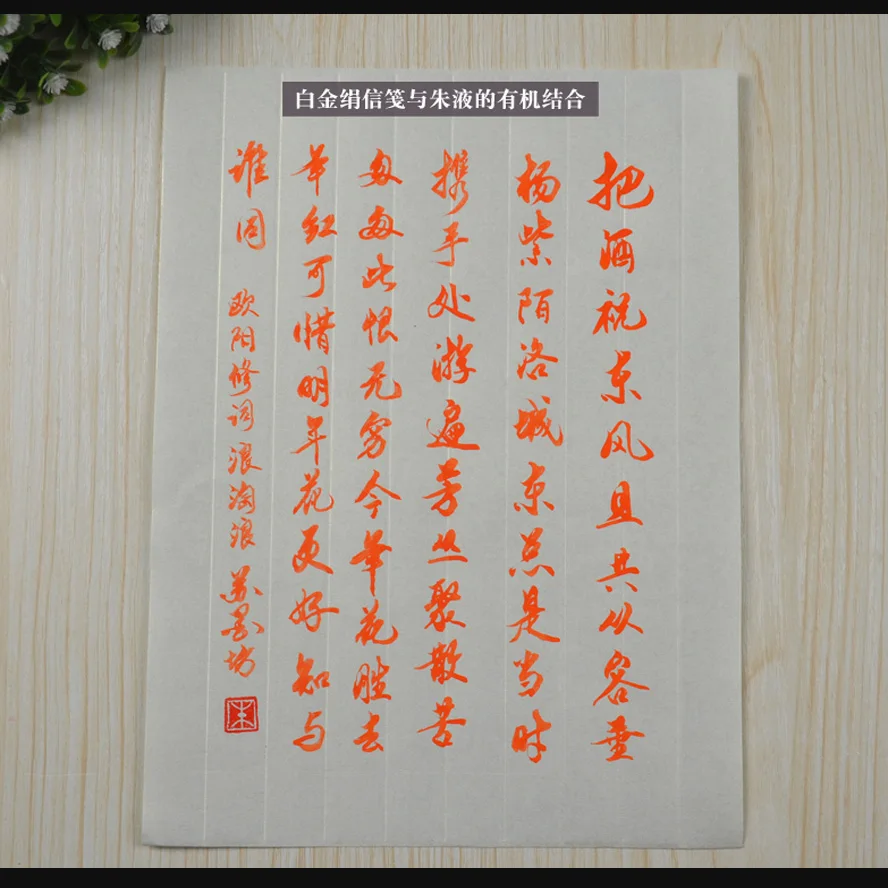 白金绢信笺与朱液的有机结合
把酒祝东风且共从容垂
杨紫陌洛城东总是当时
携手处游遍芳丛聚散苦
匆匆此恨无穷今年花胜去
年红可惜明年花更好知与
谁同 欧阳修词浪淘浪 苏墨坊